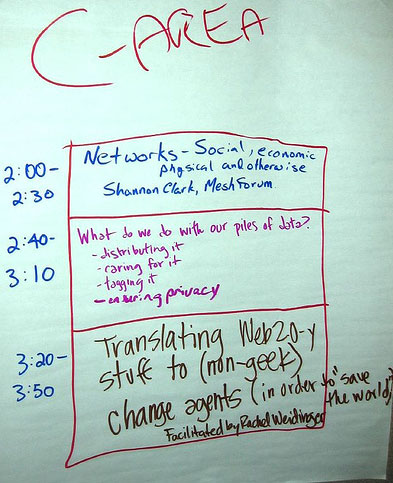 C-AREA
2:00-
2:30
Networks - Social, economic
physical and otherwise
Shannon Clark, MeshForum
2:40-
3:10
What do we do with our piles of data?
- distributing it
- caring for it
- tagging it
- ensuring privacy
3:20-
3:50
Translating Web20-y
stuff to (non-geek)
change agents (in order to "save
the world")
Facilitated by Rachel